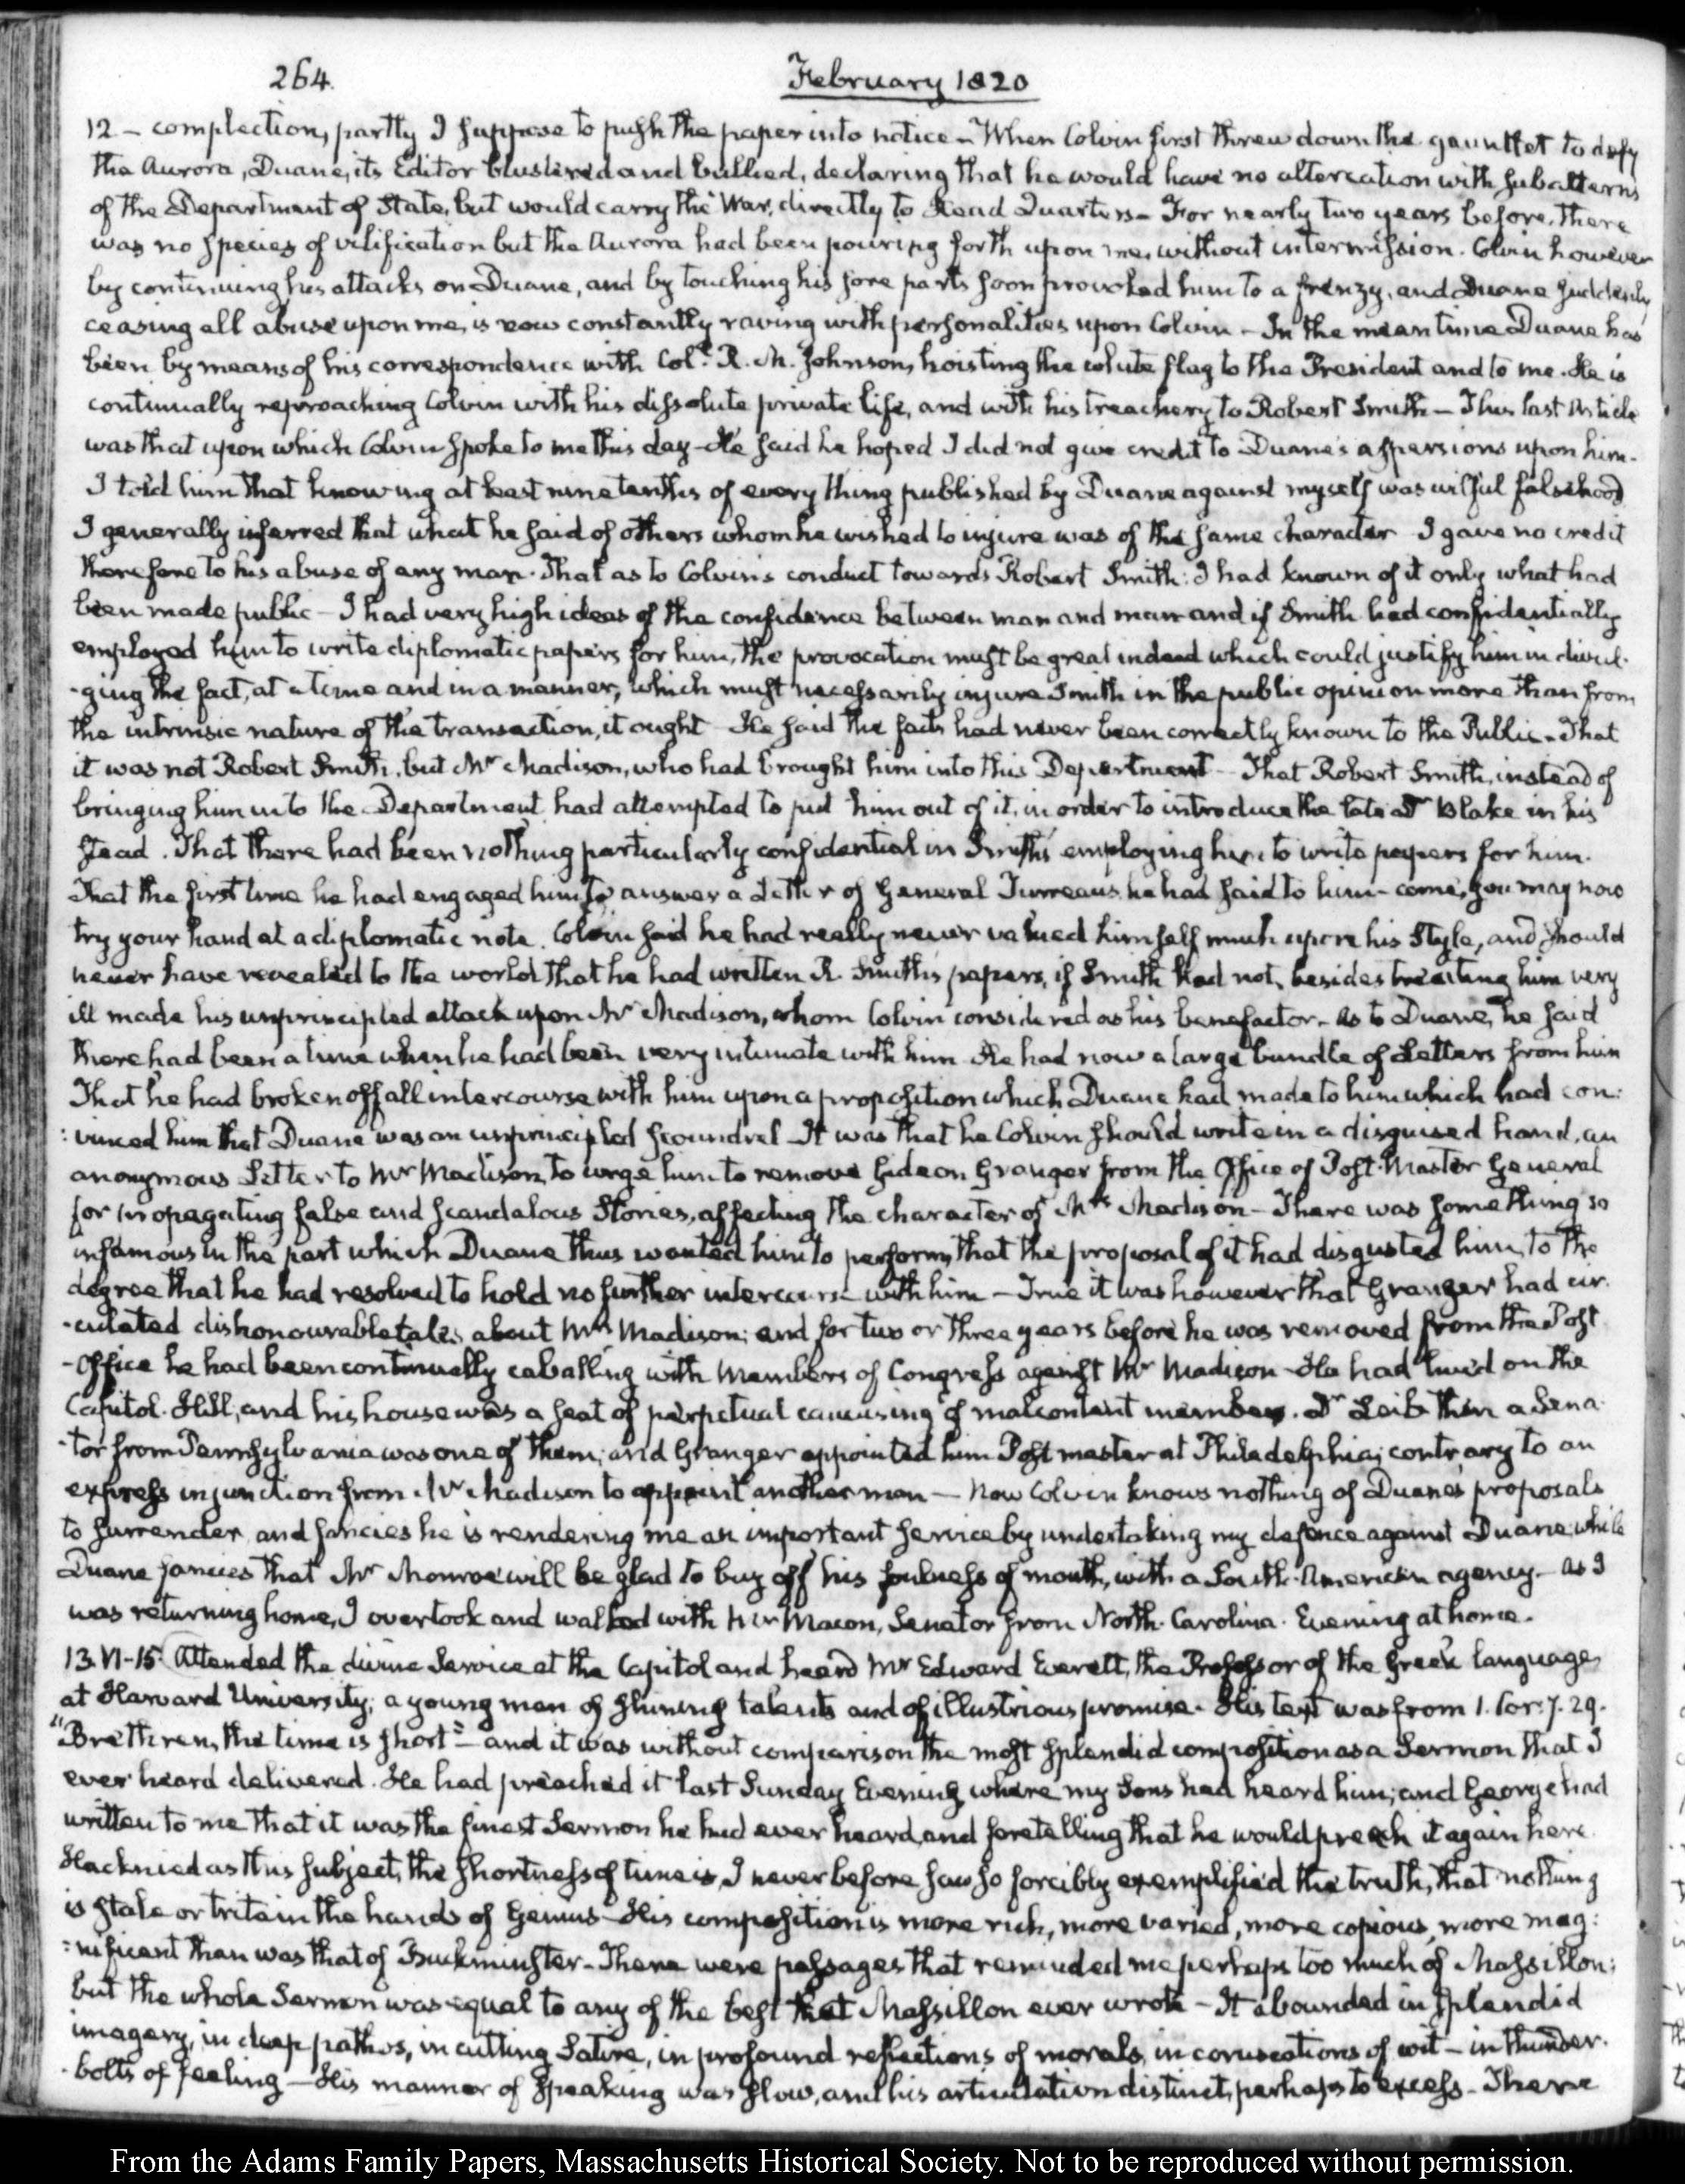 264.
February 1820
12 – complection, partly I suppose to push the paper into notice – When Colvin first threw down the gauntlet to defy
the Aurora, Duane, its Editor blustered and bullied, declaring that he would have no altercation with subalterns
of the Department of State, but would carry the War, directly to Head Quarters – For nearly two years before, there
was no species of vilification but the Aurora had been pouring forth upon me, without intermission. Colvin however
by continuing his attacks on Duane, and by touching his sore parts soon provoked him to a frenzy, and Duane suddenly
ceasing all abuse upon me, is now constantly raving with personalities upon Colvin – In the mean time Duane has
been by means of his correspondence with Col.l R. M. Johnson, hoisting the white flag to the President and to me. He is
continually reproaching Colvin with his dissolute private life, and with his treachery to Robert Smith – This last Article
was that upon which Colvin spoke to me this day – He said he hoped I did not give credit to Duane's aspersions upon him.
I told him that knowing at least nine tenths of every thing published by Duane against myself was wilful falsehood
I generally inferred that what he said of others whom he wished to injure was of the same character I gave no credit
therefore to his abuse of any man. That as to Colvin's conduct towards Robert Smith: I had known of it only what had
been made public – I had very high ideas of the confidence between man and man and if Smith had confidentially
employed him to write diplomatic papers for him, the provocation must be great indeed which could justify him in divul-
-ging the fact, at a time and in a manner, which must necessarily injure Smith in the public opinion more than from
the intrinsic nature of the transaction, it ought – He said the facts had never been correctly known to the Public – That
it was not Robert Smith, but Mr Madison, who had brought him into this Department – That Robert Smith, instead of
bringing him into the Department had attempted to put him out of it, in order to introduce the late Dr Blake in his
stead. That there had been nothing particularly confidential in Smith's employing him to write papers for him.
That the first time he had engaged him to answer a Letter of General Turreau's he had said to him – come, you may now
try your hand at a diplomatic note. Colvin said he had really never valued himself much upon his style, and should
never have revealed to the world that he had written R. Smith's papers, if Smith had not, besides treating him very
ill made his unprincipled attack upon Mr Madison, whom Colvin considered as his benefactor – As to Duane, he said
there had been a time when he had been very intimate with him He had now a large bundle of Letters from him
That he had broken off all intercourse with him upon a proposition which Duane had made to him which had con:
:vinced him that Duane was an unprincipled scoundrel – It was that he Colvin should write in a disguised hand, an
anonymous Letter to Mr Madison, to urge him to remove Gideon Granger from the Office of Post-Master General
for propagating false and scandalous Stories, affecting the character of Mrs Madison – There was something so
infamous in the part which Duane thus wanted him to perform, that the proposal of it had disgusted him, to the
degree that he had resolved to hold no further intercourse with him – True it was however that Granger had cir-
-culated dishonourable tales about Mrs Madison; and for two or three years before he was removed from the Post
-Office he had been continually caballing with Members of Congress against Mr Madison – He had lived on the
Capitol-Hill, and his house was a seat of perpetual caucusing of malcontent members. Dr Leib then a Sena-
-tor from Pennsylvania was one of them; and Granger appointed him Postmaster at Philadelphia; contrary to an
express injunction from Mr Madison to appoint another man – Now Colvin knows nothing of Duane's proposals
to surrender, and fancies he is rendering me an important service by undertaking my defence against Duane; while
Duane fancies that Mr Monroe will be glad to buy off his foulness of mouth, with a South-American agency – As I
was returning home, I overtook and walked with Mr Macon, Senator from North-Carolina. Evening at home.
13. VI-15. Attended the divine Service at the Capitol and heard Mr Edward Everett, the Professor of the Greek language
at Harvard University; a young man of shining talents and of illustrious promise. His text was from 1. Cor: 7. 29.
"Brethren, the time is short" – and it was without comparison the most splendid composition as a Sermon that I
ever heard delivered. He had preached it last Sunday Evening, where my Sons had heard him; and George had
written to me that it was the finest Sermon he had ever heard, and foretelling that he would preach it again here.
Hacknied as this subject, the shortness of time is, I never before saw so forcibly exemplified the truth, that nothing
is stale or trite in the hands of Genius – His composition is more rich, more varied, more copious, more mag:
:nificent than was that of Buckminster – There were passages that reminded me perhaps too much of Massillon;
but the whole Sermon was equal to any of the best that Massillon ever wrote – It abounded in splendid
imagery, in deep pathos, in cutting Satire, in profound reflections of morals, in coruscations of wit – in thunder-
-bolts of feeling – His manner of speaking was slow, and his articulation distinct, perhaps to excess – There
From the Adams Family Papers, Massachusetts Historical Society. Not to be reproduced without permission.